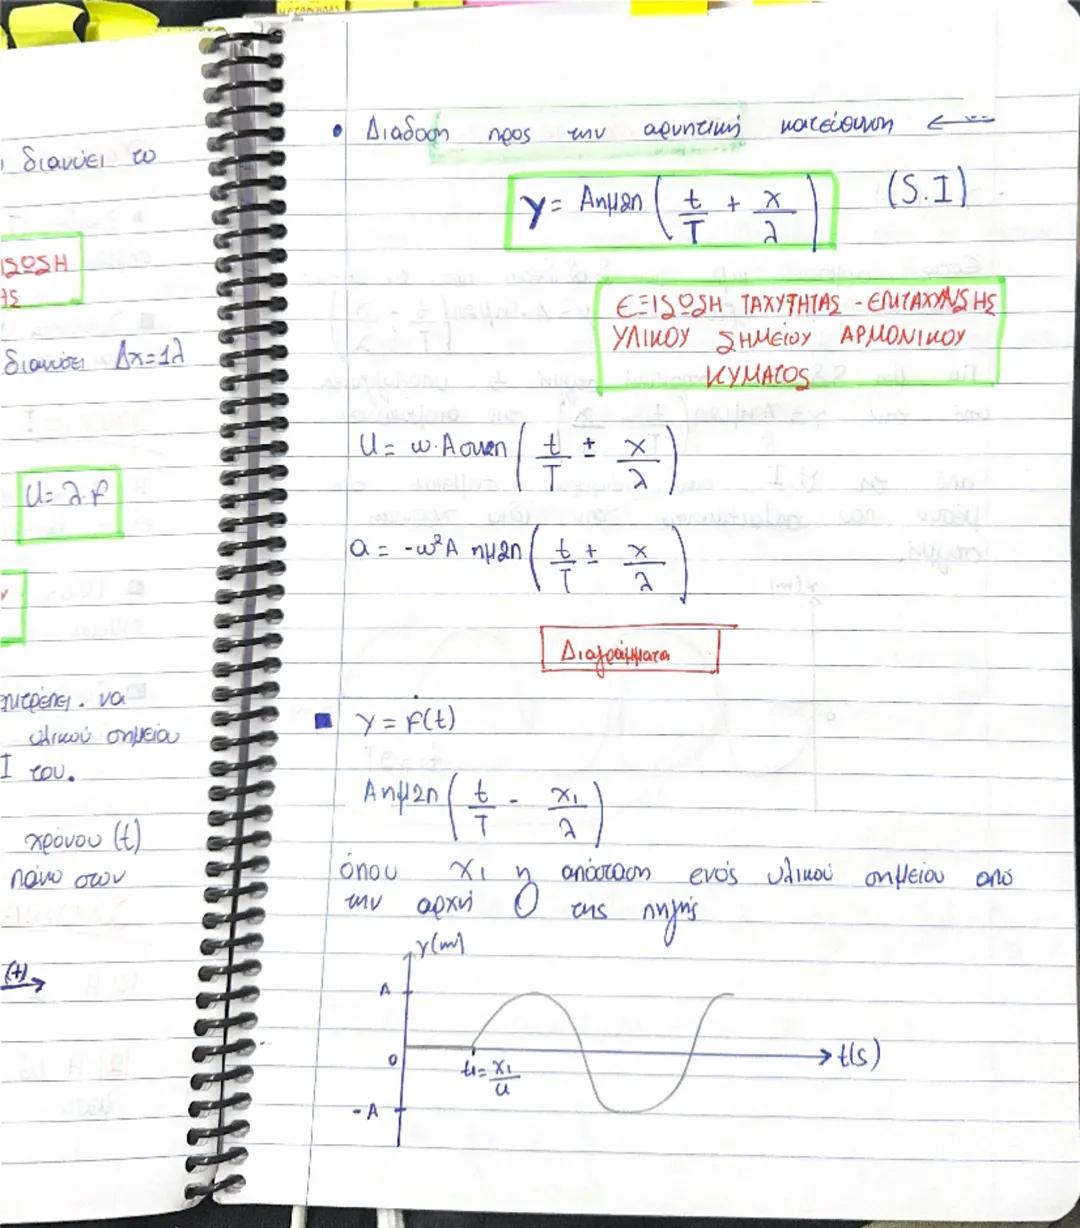 ι διανύει το
ΙΣΩΣΗ
ΗΣ
διανύσει Δx=1λ
U=λ.f
να
υλικού σημείου
Ι του.
χρόνου (t)
πάνω στον
(+)→
• Διάδοση προς την αρνητική κατεύθυνση ←---
y= Aημ2π (t/T + x/λ) (S.I)
ΕΞΙΣΩΣΗ ΤΑΧΥΤΗΤΑΣ - ΕΠΙΤΑΧΥΝΣΗΣ
ΥΛΙΚΟΥ ΣΗΜΕΙΟΥ ΑΡΜΟΝΙΚΟΥ
ΚΥΜΑΤΟΣ
U= ω.Aσυν2π (t/T ± x/λ)
a = -ω²A ημ2π (t/T ± x/λ)
Διαγράμματα
■ y = f(t)
Aημ2π (t/T - x₁/λ)
όπου x₁ η απόσταση ενός υλικού σημείου από
την αρχή O της πηγής
y(m)
A
0
t₁= x₁/u
t(s)
-A